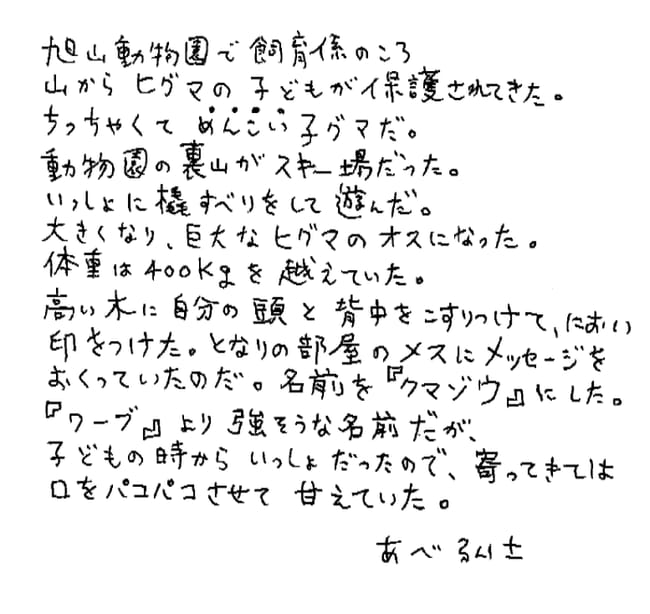 旭山動物園で飼育係のころ
山からヒグマの子どもが保護されてきた。
ちっちゃくてめんこい子グマだ。
動物園の裏山がスキー場だった。
いっしょに橇すべりをして遊んだ。
大きくなり、巨大なヒグマのオスになった。
体重は400Kgを越えていた。
高い木に自分の頭と背中をこすりつけて、におい
印をつけた。となりの部屋のメスにメッセージを
おくっていたのだ。名前を『クマゾウ』にした。
『ワーブ』より強そうな名前だが、
子どもの時からいっしょだったので、寄ってきては
口をパコパコさせて甘えていた。
あべ弘士